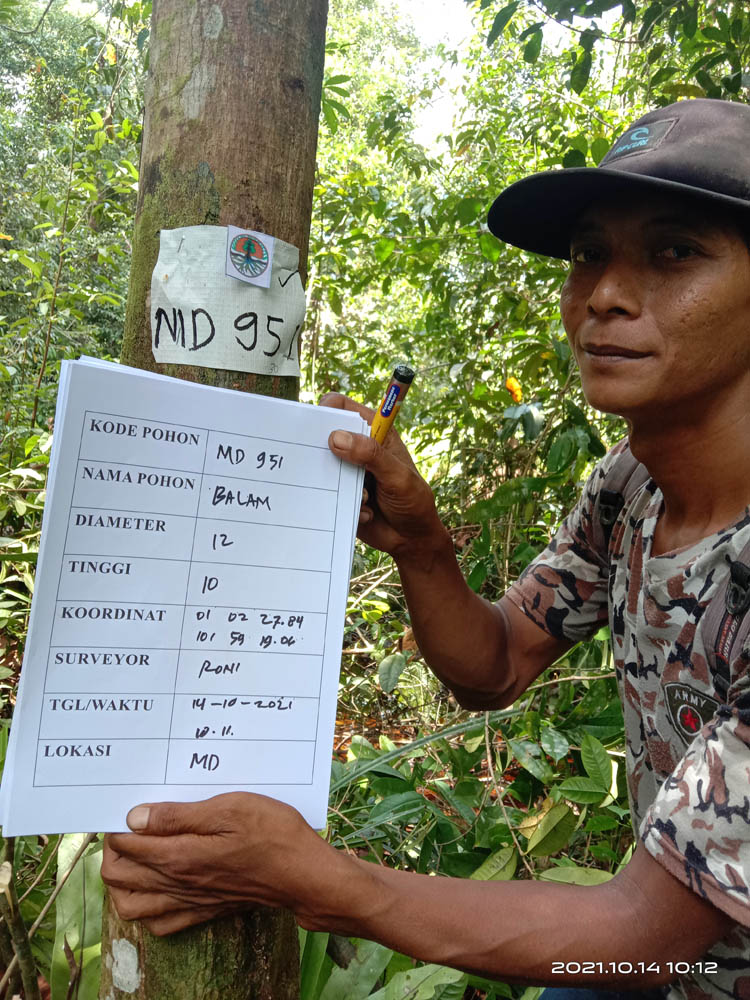 RIPCURL
MD 951
KODE POHON MD 951
NAMA POHON BALAM
DIAMETER 12
TINGGI 10
KOORDINAT 01 02 27.84
101 59 19.06
SURVEYOR RONI
TGL/WAKTU 14-10-2021
10.11.
LOKASI MD
ARMY
2021.10.14 10:12